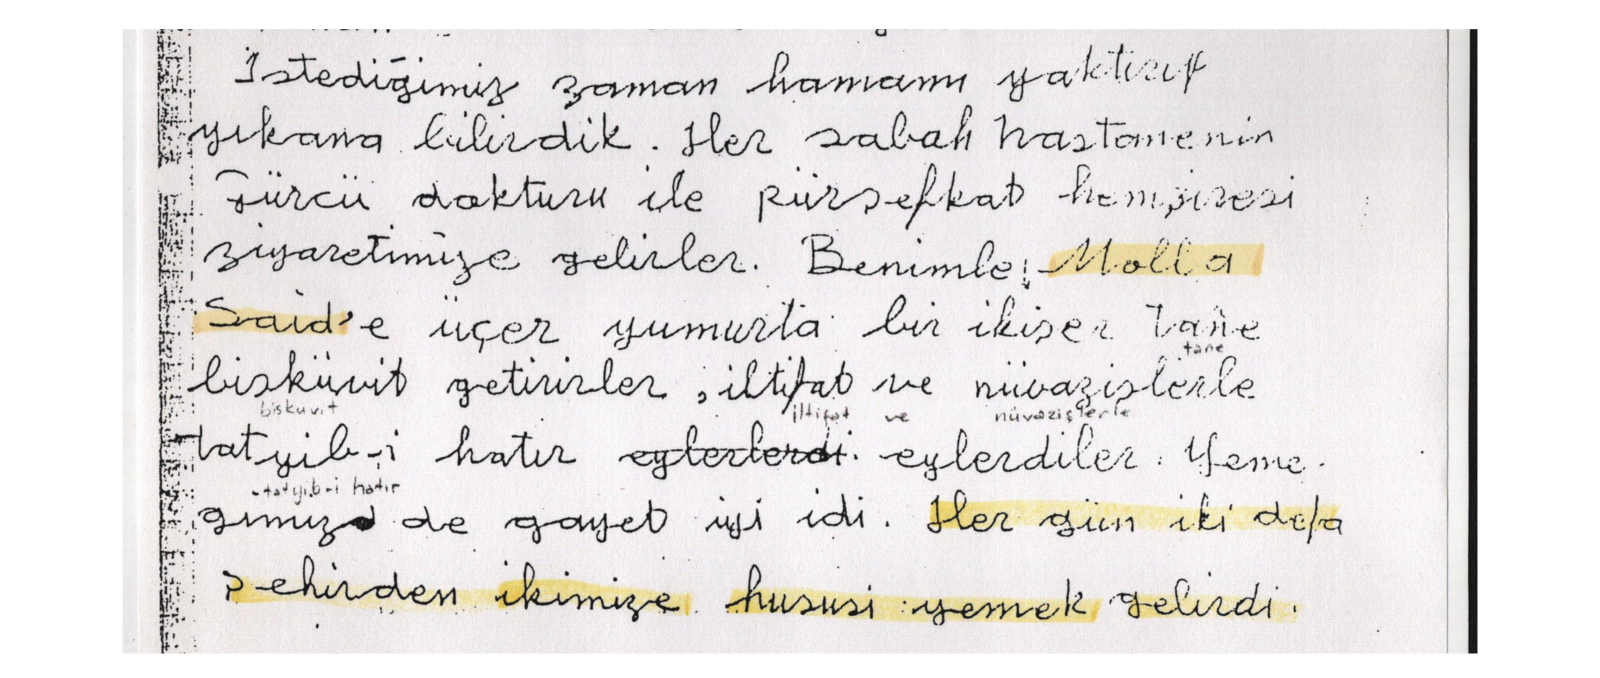 İstediğimiz zaman hamamı yaktırıp
yıkana bilirdik. Her sabah hastanenin
Gürcü dokturu ile pürşefkat hemşiresi
ziyaretimize gelirler. Benimle, Molla
Said'e üçer yumurta bir ikişer tane
tane
bisküvit getirirler, iltifat ve nüvazişlerle
biskuvit iltifat ve nüvazişlerle
tatyib-i hatır eylerlerdi. eylerdiler. Yeme-
tatyib-i hatır
ğimizd de gayet iyi idi. Her gün iki defa
şehirden ikimize hususi yemek gelirdi.